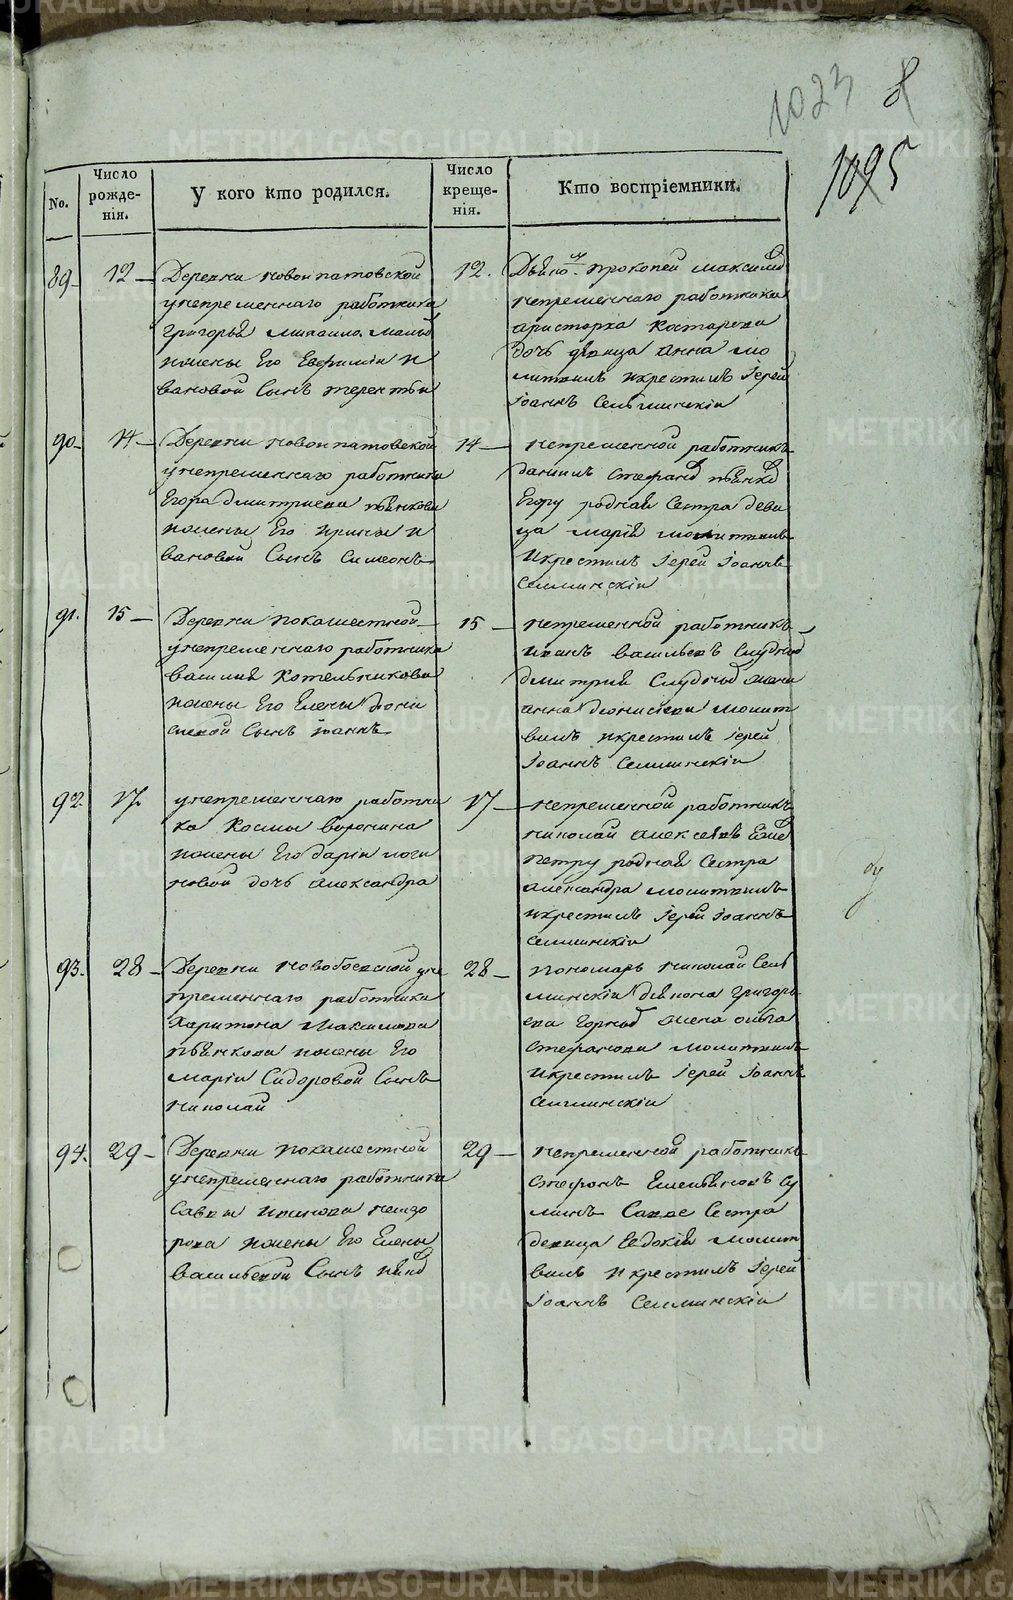 1023 8
1095
No.
Число рожде-нія.
У кого кто родился.
Число креще-нія.
Кто воспріемники.
89 12 Деревни новоипатовской
унепременнаго работника
григорья
ижены Его Евфимiи и
вановой Сынъ терентьи
12. прокопей максимо
непременнаго работника
аристарха костарева
дочь девица анна мо
литвилъ икрестилъ Iерей
Iоаннъ Селменскiи
90 14 Деревни новоипатовской
унепременнаго работника
Егора дмитриева пьянкова
ижены Его ирины и
вановой Сынъ Симеонъ
14 непременной работникъ
данилъ стефано пьянко
Егору родная Сестра деви
ца марiя молитвилъ
икрестилъ Iерей Iоаннъ
Селменскiи
91. 15 Деревни покашестной
унепременнаго работника
василия Котельникова
ижены Его Елены диони
сиевой Сынъ Iоаннъ
15 непременной работникъ
иванъ васильевъ
дмитрия жена
анна дионисиева молит
вилъ икрестилъ Iерей
Iоаннъ Селменскiи
92. 17. унепременнаго работни
ка Космы воронина
ижены Его дарiи логи
новой дочь александра
17 непременной работникъ
николай алексеевъ
петру родная Сестра
александра молитвилъ
икрестилъ Iерей Iоаннъ
Селменскiи
93. 28 Деревни новобоевской уне
пременнаго работника
Харитона Максимова
пьянкова ижены Его
марiи Сидоровой Сынъ
николай
28 пономарь николай Сел
менскiи дьякона григорь
ева жена ольга
стефанова молитвилъ
икрестилъ Iерей Iоаннъ
Селменскiи
94. 29 Деревни покашестной
унепременнаго работника
Саввы
ижены Его Елены
васильевой Сынъ
29 непременной работникъ
стефанъ Емельяновъ Су
Савве Сестра
девица Евдокiя молит
вилъ икрестилъ Iерей
Iоаннъ Селменскiи
METRIKI.GASO-URAL.RU